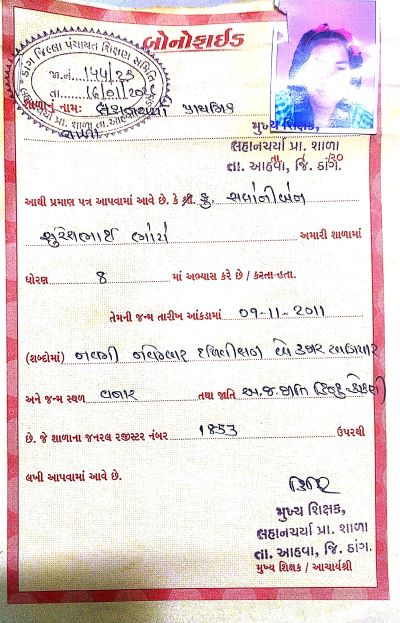 બોનોફાઈડ
ડાંગ જિલ્લા પંચાયત શિક્ષણ સમિતિ
જા.નં. ૧૫૫/૨૩
તા.
શાળાનું નામ: પ્રાથમિક
શાળા
મુખ્ય શિક્ષક,
લહાનચર્યા પ્રા. શાળા
તા. આહવા, જિ. ડાંગ.
આથી પ્રમાણ પત્ર આપવામાં આવે છે. કે શ્રી. કુ.
સુરેશભાઈ ભોયે અમારી શાળામાં
ધોરણ 8 માં અભ્યાસ કરે છે / કરતા હતા.
તેમની જન્મ તારીખ આંકડામાં 09-11-2011
(શબ્દોમાં) નવમી નવેમ્બર બે હજાર અગિયાર
અને જન્મ સ્થળ તથા જાતિ અ.જ.જાતિ હિન્દુ કોકણી
છે. જે શાળાના જનરલ રજીસ્ટર નંબર 1853 ઉપરથી
લખી આપવામાં આવે છે.
મુખ્ય શિક્ષક,
લહાનચર્યા પ્રા. શાળા
તા. આહવા, જિ. ડાંગ.
મુખ્ય શિક્ષક / આચાર્યશ્રી